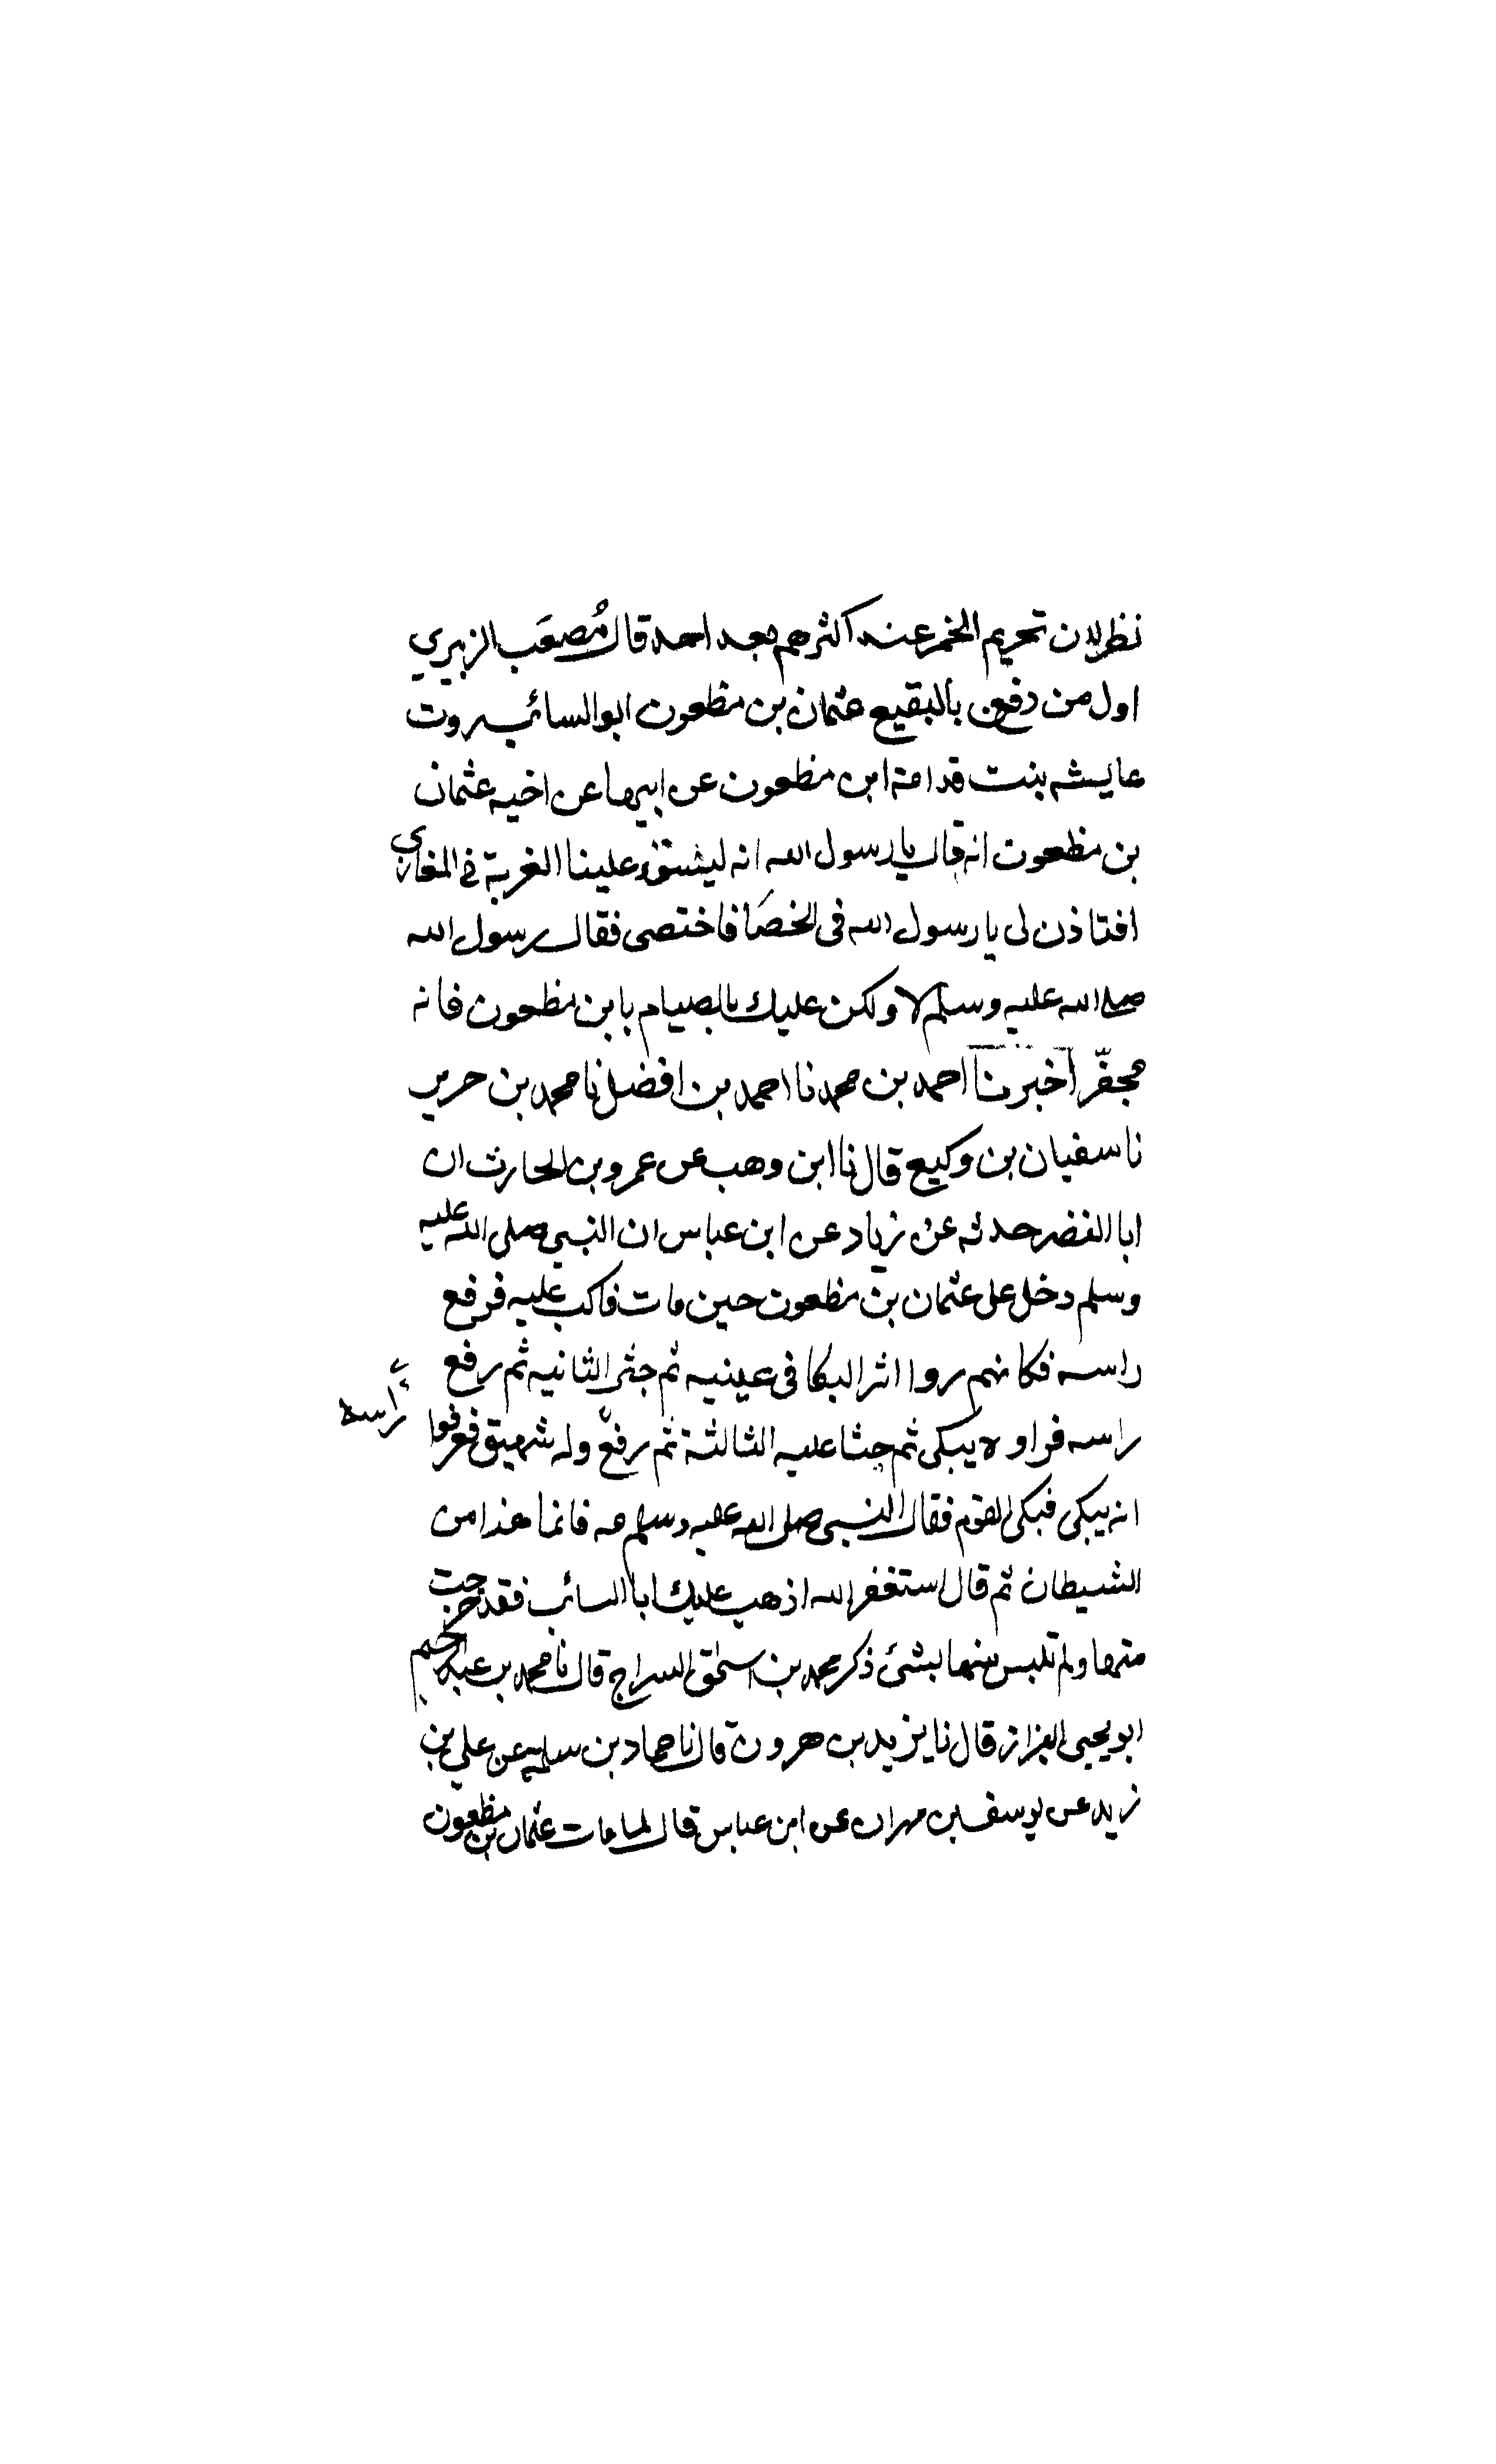 نظر لان تحريم الخمر عند اكثرهم بعد احد قال مُصعَب الزبيري
اول من دفن بالبقيع عثمان بن مظعون ابو السائب روت
عايشه بنت قدامة ابن مظعون عن ابيها عن اخيه عثمان
بن مظعون انه قال يا رسول الله انه ليشق علينا الغربة في المغازي
افتاذن لى يا رسول الله فى الخصَا فاختصى فقال رسول الله
صلى الله عليه وسلم لا ولكن عليك بالصيام يا بن مظعون فانه
مجفّر اخبرنا احمد بن محمد نا احمد بن افضل نا محمد بن جرير
نا سفيان بن وكيع قال نا ابن وهب عن عمرو بن الحارث ان
ابا النضر حدثه عن زياد عن ابن عباس ان النبي صلى الله عليه
وسلم دخل على عثمان بن مظعون حين مات فاكب عليه فرفع
راسه فكانهم روا اثر البكا فى عينيه ثم جثى الثانيه ثم رفع
راسه فراوه يبكى ثم جثا عليه الثالثة ثم رفع وله شهيق فعرفوا
راسه
انه يبكى فبكى القوم فقال النبى صلى الله عليه وسلم مه فانما هذا من
الشيطان ثم قال استغفر الله اذهب عليك ابا السائب فقد خرجت
منها ولم تلبس منها بشئ ذكر محمد بن اسحاق السراج قال نا محمد بن عبد الرحيم
ابو يحيى البزاز قال نا يزيد بن هرون قال نا حماد بن سلمه عن علي بن
زيد عن يوسف بن مهران عن ابن عباس قال لما مات عثمان بن مظعون